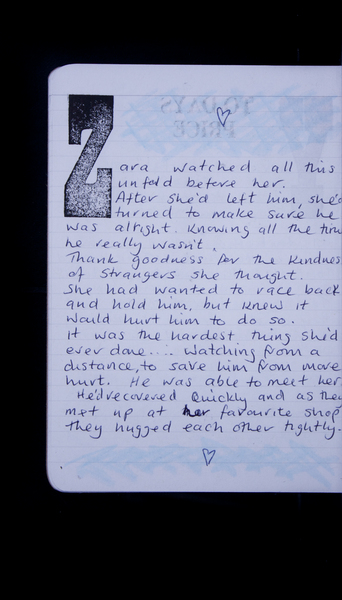 TO DAYS
PRICE
Zara watched all this
unfold before her.
After she'd left him, she'd
turned to make sure he
was alright. Knowing all the time
he really wasn't.
Thank goodness for the kindness
of strangers she thought.
She had wanted to race back
and hold him, but knew it
would hurt him to do so.
It was the hardest thing she'd
ever done.... Watching from a
distance, to save him from more
hurt. He was able to meet her.
He'd recovered quickly and as they
met up at her favourite shop
they hugged each other tightly.